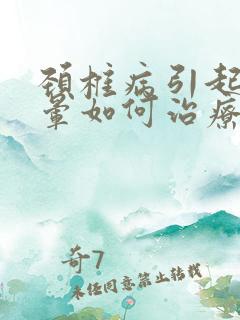 颈椎病引起
晕如何治疗
奇7
未经同意禁止转载